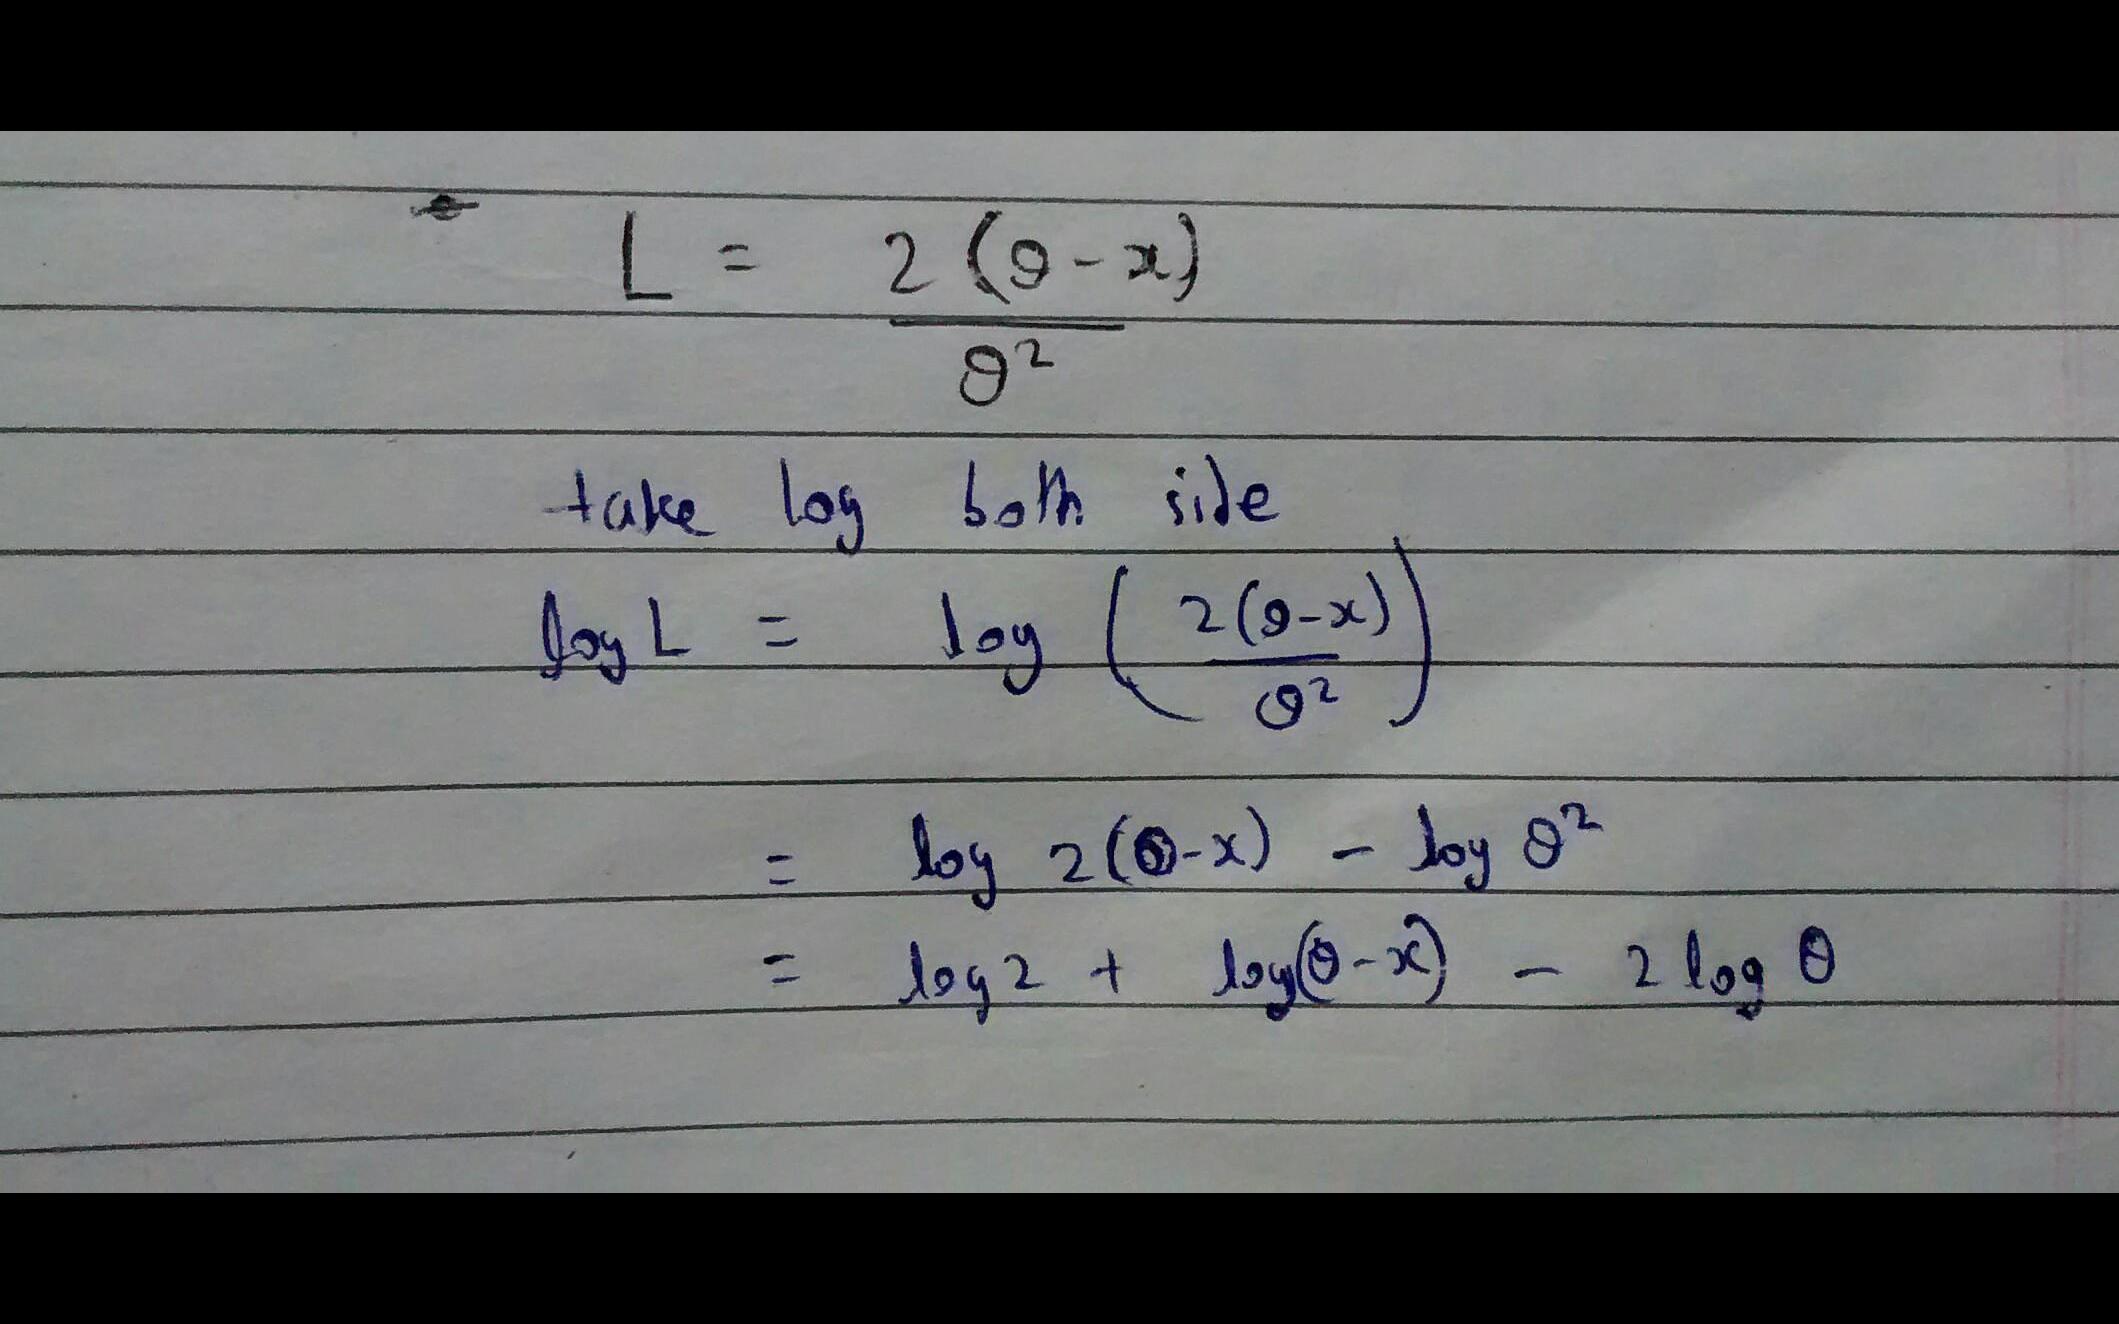 L = 2(θ-x)
θ²
take log both side
log L = log (2(θ-x)
θ²)
= log 2(θ-x) - log θ²
= log 2 + log(θ-x) - 2 log θ